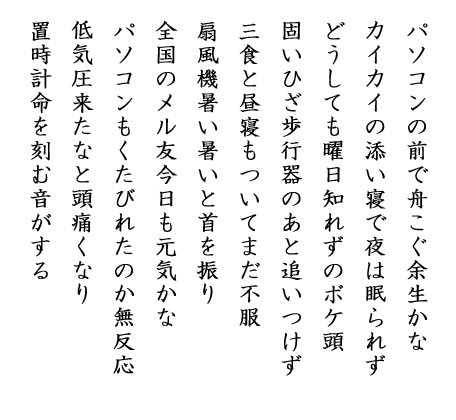 パソコンの前で舟こぐ余生かな
カイカイの添い寝で夜は眠られず
どうしても曜日知れずのボケ頭
固いひざ歩行器のあと追いつけず
三食と昼寝もついてまだ不服
扇風機暑い暑いと首を振り
全国のメル友今日も元気かな
パソコンもくたびれたのか無反応
低気圧来たなと頭痛くなり
置時計命を刻む音がする